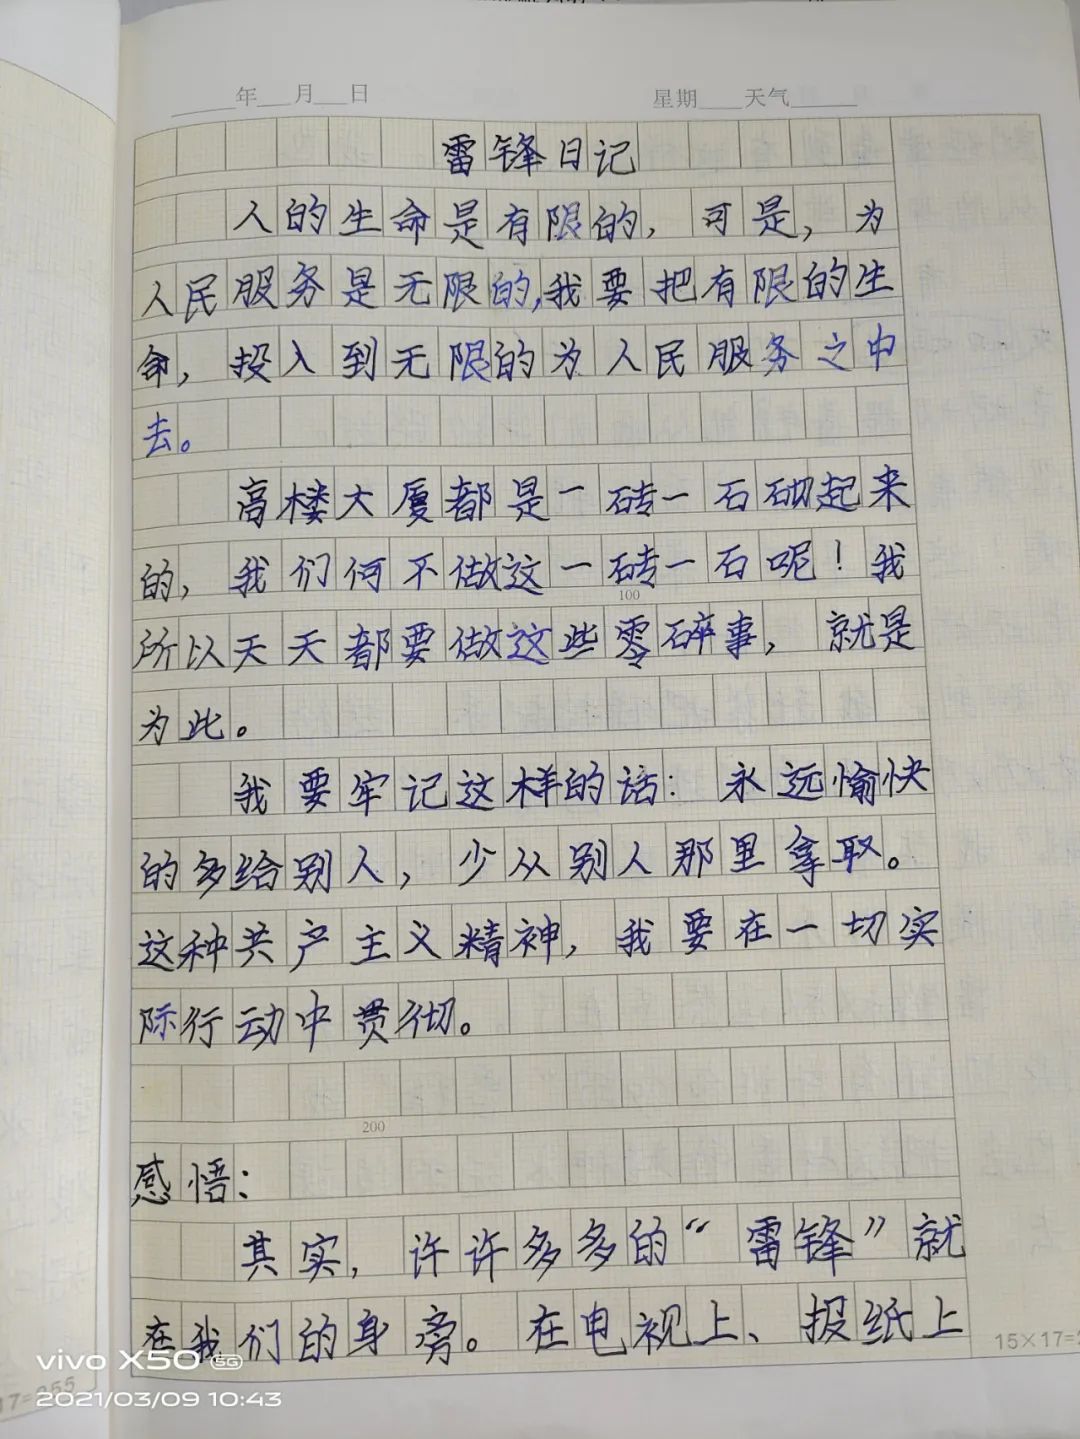 年 月 日 星期 天气
雷锋日记
人的生命是有限的，可是，为
人民服务是无限的，我要把有限的生
命，投入到无限的为人民服务之中
去。
高楼大厦都是一砖一石砌起来
的，我们何不做这一砖一石呢！我
100
所以天天都要做这些零碎事，就是
为此。
我要牢记这样的话：永远愉快
的多给别人，少从别人那里拿取。
这种共产主义精神，我要在一切实
际行动中贯彻。
200
感悟：
其实，许许多多的“雷锋”就
在我们的身旁。在电视上、报纸上
15×17=2
17=255
vivo X50 5G
2021/03/09 10:43